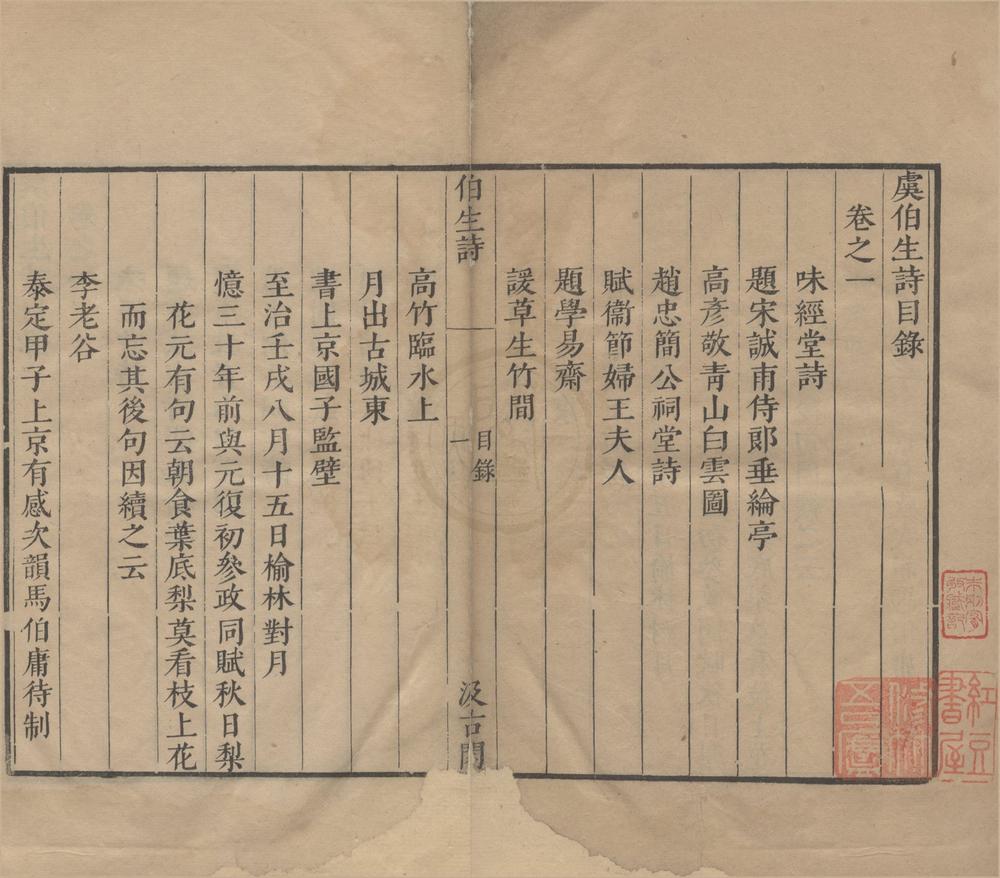 虞伯生詩目錄
卷之一
味經堂詩
題宋誠甫侍郎垂綸亭
高彥敬青山白雲圖
趙忠簡公祠堂詩
賦衞節婦王夫人
題學易齋
諼草生竹間
伯生詩
目錄
一
汲古閣
高竹臨水上
月出古城東
書上京國子監壁
至治壬戌八月十五日榆林對月
憶三十年前與元復初參政同賦秋日梨
花元有句云朝食葉底梨莫看枝上花
而忘其後句因續之云
李老谷
泰定甲子上京有感次韻馬伯庸待制
紅豆書屋